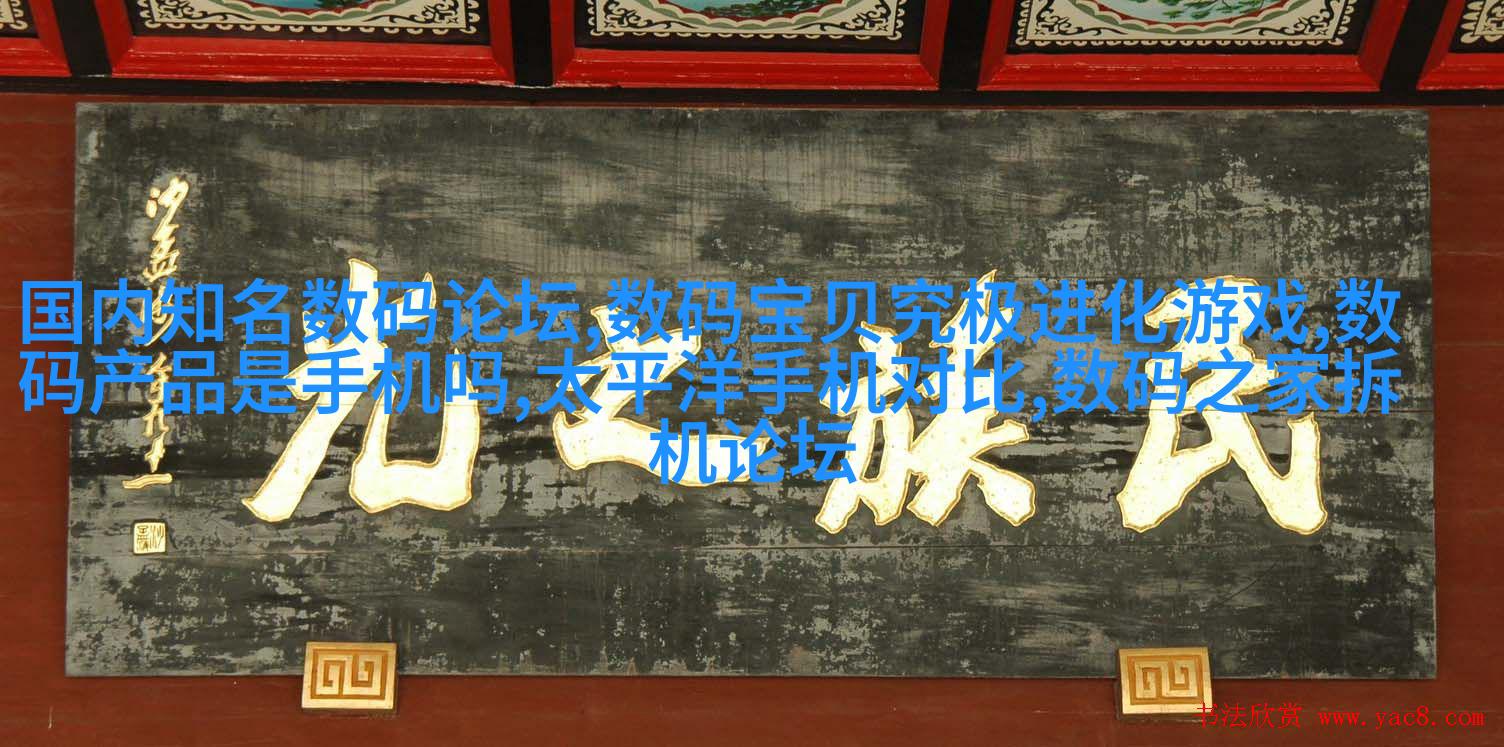 国内知名数码论坛,数码宝贝究极进化游戏,数
码产品是手机吗,太平洋手机对比,数码之家拆
机论坛
民族之光
书法欣赏 www.yac8.com